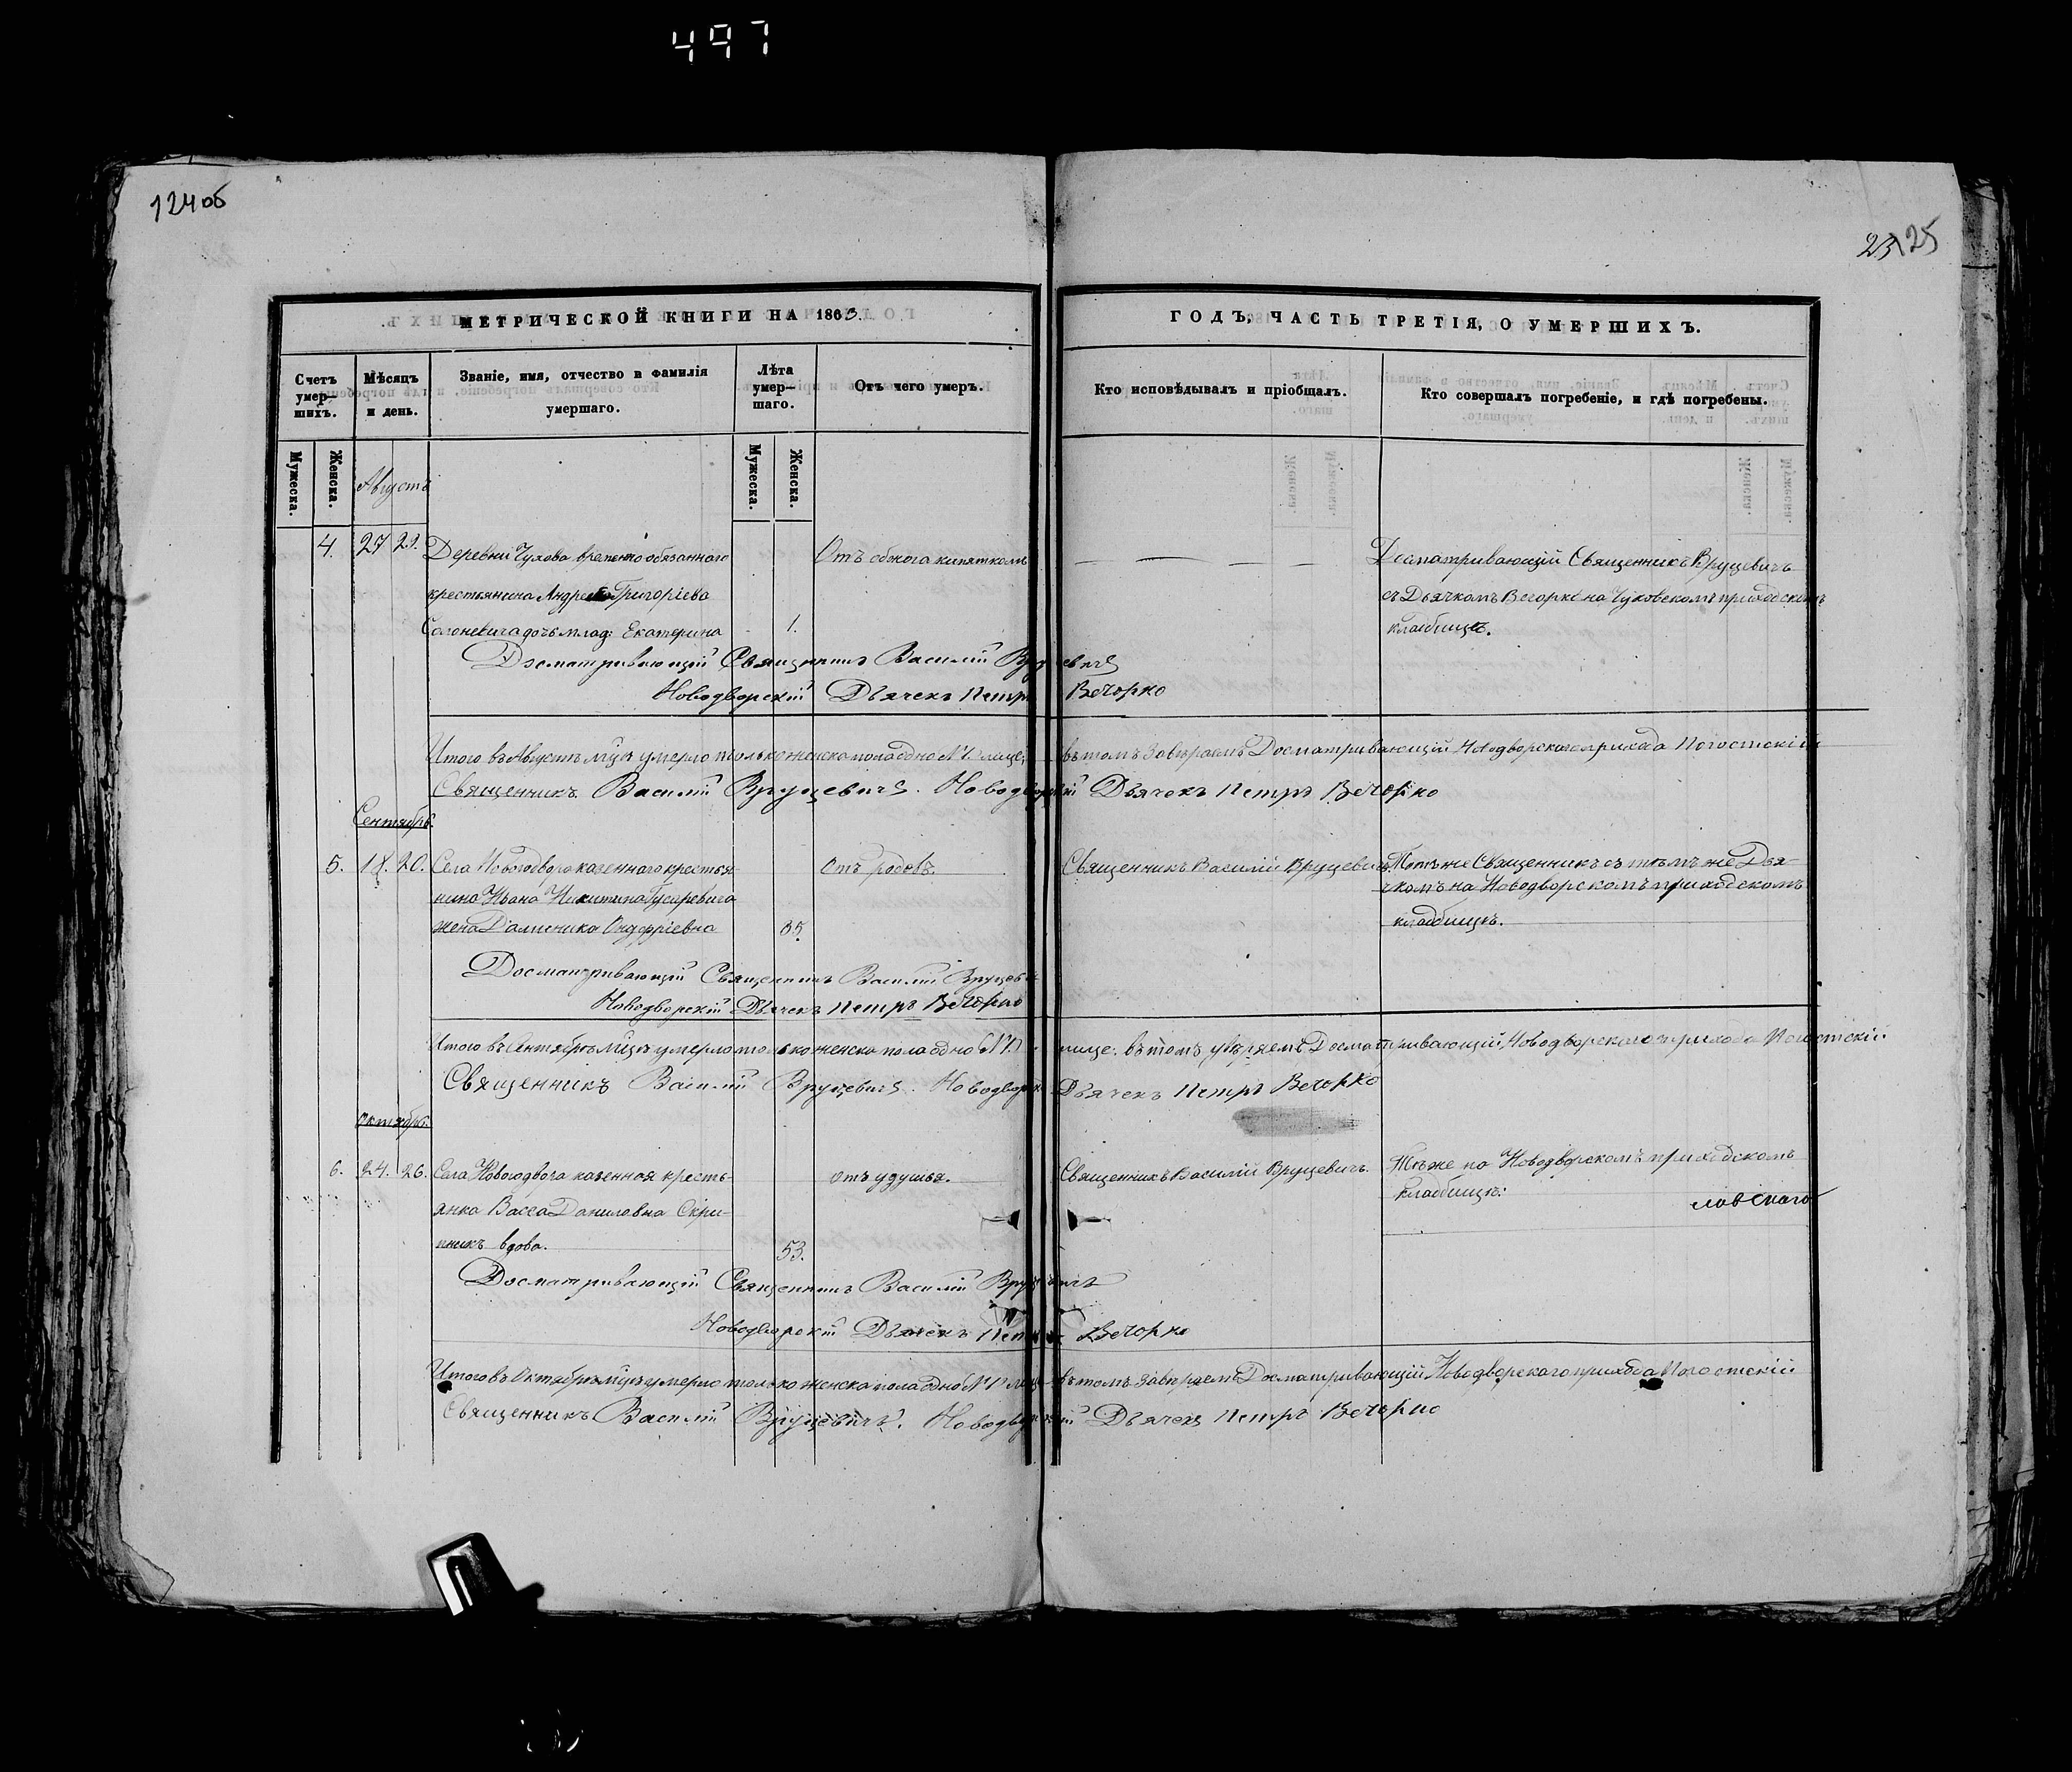 497
124 об
25
МЕТРИЧЕСКОЙ КНИГИ НА 1863.
ГОДЪ, ЧАСТЬ ТРЕТІЯ, О УМЕРШИХЪ.
Счетъ умер- шихъ.
Мѣсяцъ и день.
Званіе, имя, отчество и фамилія умершаго.
Лѣта умер- шаго.
Отъ чего умеръ.
Кто исповѣдывалъ и пріобщалъ.
Кто совершалъ погребеніе, и гдѣ погребены.
Мужеска.
Женска.
Мужеска.
Женска.
Августъ
4. 27 29.
Деревни Чухова временно обязаннаго
крестьянина Андрея Григоріева
Солоневича дочь млад: Екатерина
1.
Отъ обжога кипяткомъ
Досматривающій Священникъ Вруцевичъ
съ Дьячкомъ Вечорко на Чуховскомъ приходскомъ
кладбищѣ.
Досматривающій Священникъ Василій Вруцевичъ
Новодворскій Дьячекъ Петръ Вечорко
Итого въ Августѣ м͠цѣ умерло только женска пола одно № 1. лице; въ томъ завѣряемъ Досматривающій Новодворскаго прихода Погостскій
Священникъ Василій Вруцевичъ. Новодворскій Дьячекъ Петръ Вечорко
Сентябрь.
5. 18. 20.
Села Новогодвора казеннаго крестья-
нина Ивана Никитина Гусаревича
жена Доминика Онуфріевна
35.
Отъ родовъ.
Священникъ Василій Вруцевичъ.
Тотъ же Священникъ съ тѣмъ же Дья-
чкомъ на Новодворскомъ приходскомъ
кладбищѣ.
Досматривающій Священникъ Василій Вруцевичъ
Новодворскій Дьячекъ Петръ Вечорко
Итого въ Сентябрѣ м͠цѣ умерло только женска пола одно № 1. лице. въ томъ увѣряемъ Досматривающій Новодворскаго прихода Погостскій
Священникъ Василій Вруцевичъ. Новодворскій Дьячекъ Петръ Вечорко
Октябрь.
6. 24. 26.
Села Новогодвора казенная кресть-
янка Васса Даниловна Скри-
пникъ вдова.
53.
отъ удушья.
Священникъ Василій Вруцевичъ.
Тѣ же на Новодворскомъ приходскомъ
кладбищѣ:
ловскаго
Досматривающій Священникъ Василій Вруцевичъ
Новодворскій Дьячекъ Петръ Вечорко
Итого въ Октябрѣ м͠цѣ умерло только женска пола одно № 1. лице въ томъ завѣряемъ Досматривающій Новодворскаго прихода Погостскій
Священникъ Василій Вруцевичъ. Новодворскій Дьячекъ Петръ Вечорко